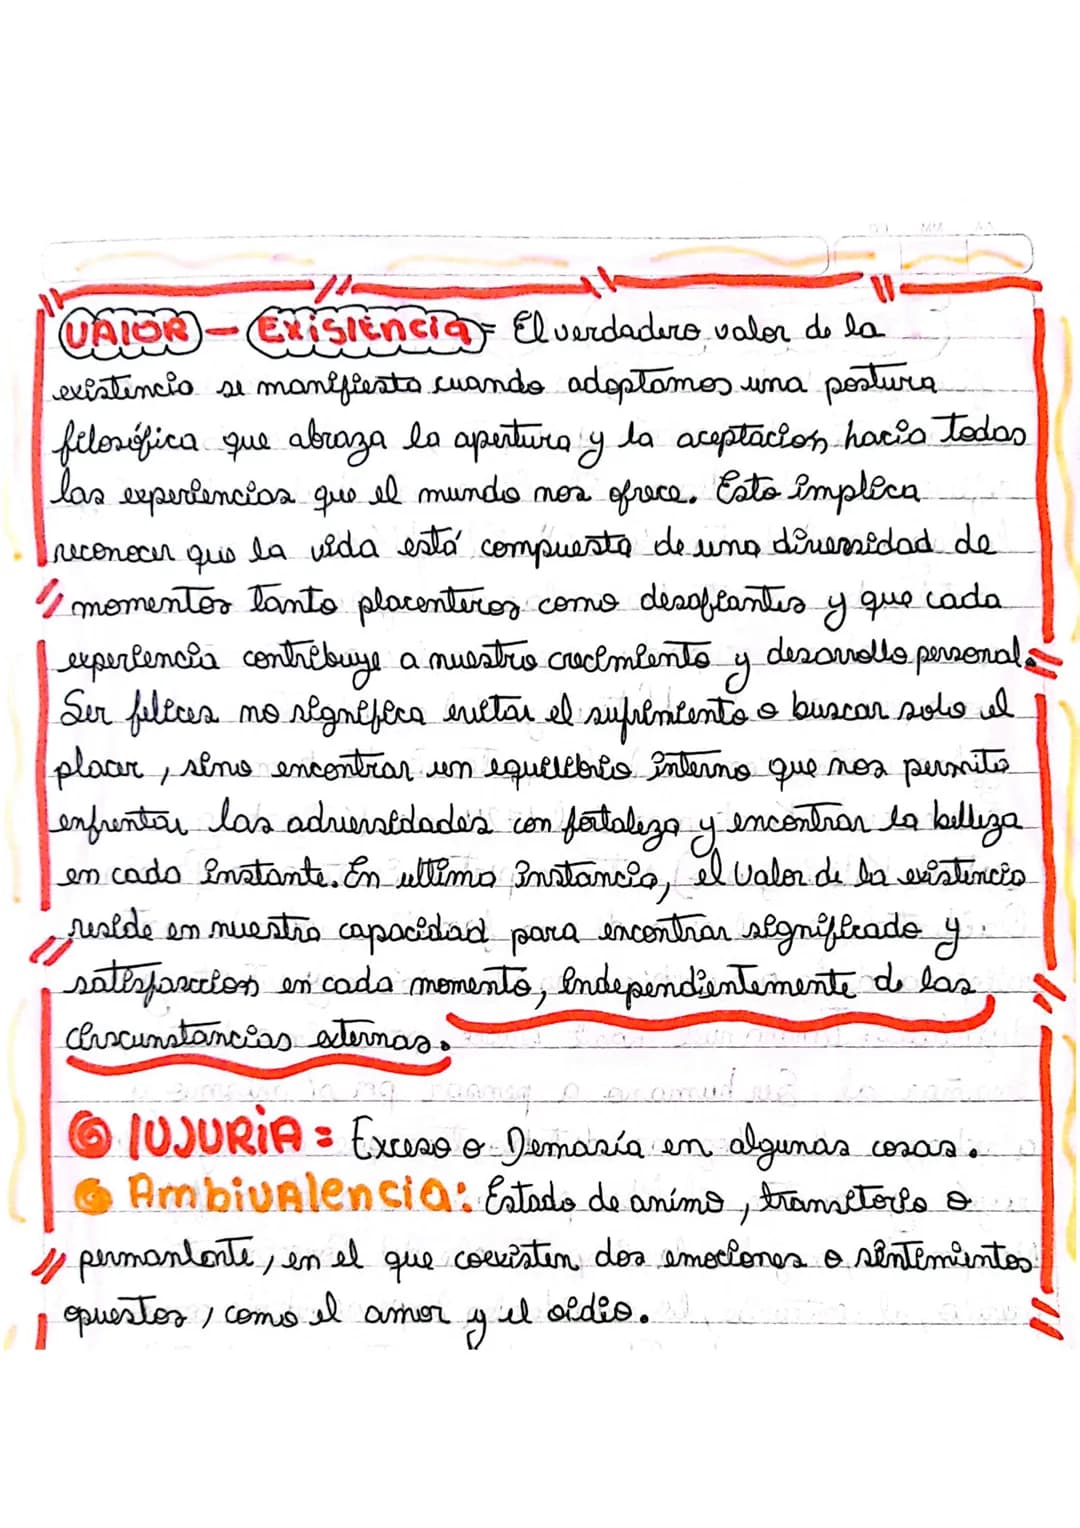 VAlOR - Existencia = El verdadero valor de la
existencia se manifiesta cuando adoptamos una postura
filosófica que abraza la apertura y la aceptacion hacia todas
las experiencias que el mundo nos ofrece. Esto implica
reconocer que la vida está compuesta de una diversidad de
momentos tanto placenteros como desafiantes y que cada
experiencia contribuye a nuestro crecimiento y desarrollo personal.
Ser felices no significa evitar el sufrimiento o buscar solo el
placer, sino encontrar un equilibrio interno que nos permita
enfrentar las adversidades con fortaleza y encontrar la belleza
en cada instante. En ultima instancia, el valor de la existencia
reside en nuestra capacidad para encontrar significado y
satisfaccion en cada momento, independientemente de las
circunstancias externas.
lUJURiA = Exceso o Demasía en algunas cosas.
Ambivalencia: Estado de animo, transitorio o
permanente, en el que coexisten dos emociones o sentimientos
opuestos, como el amor y el oidio.